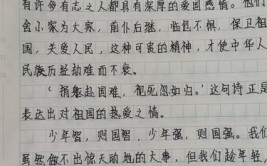 有许多有志之人都具有深厚的爱国感情。他们
舍小家为大家，前仆后继，临危不惧，保卫祖
国，关爱人民，这种可贵的精神，才使中华人
民族历经劫难而不衰。
“捐躯赴国难，视死忽如归。”这句诗正是
表达出对祖国的热爱之情。
少年智，则国智，少年强，则国强。我们
虽然做不出惊天动地的大事，但我们趁年轻